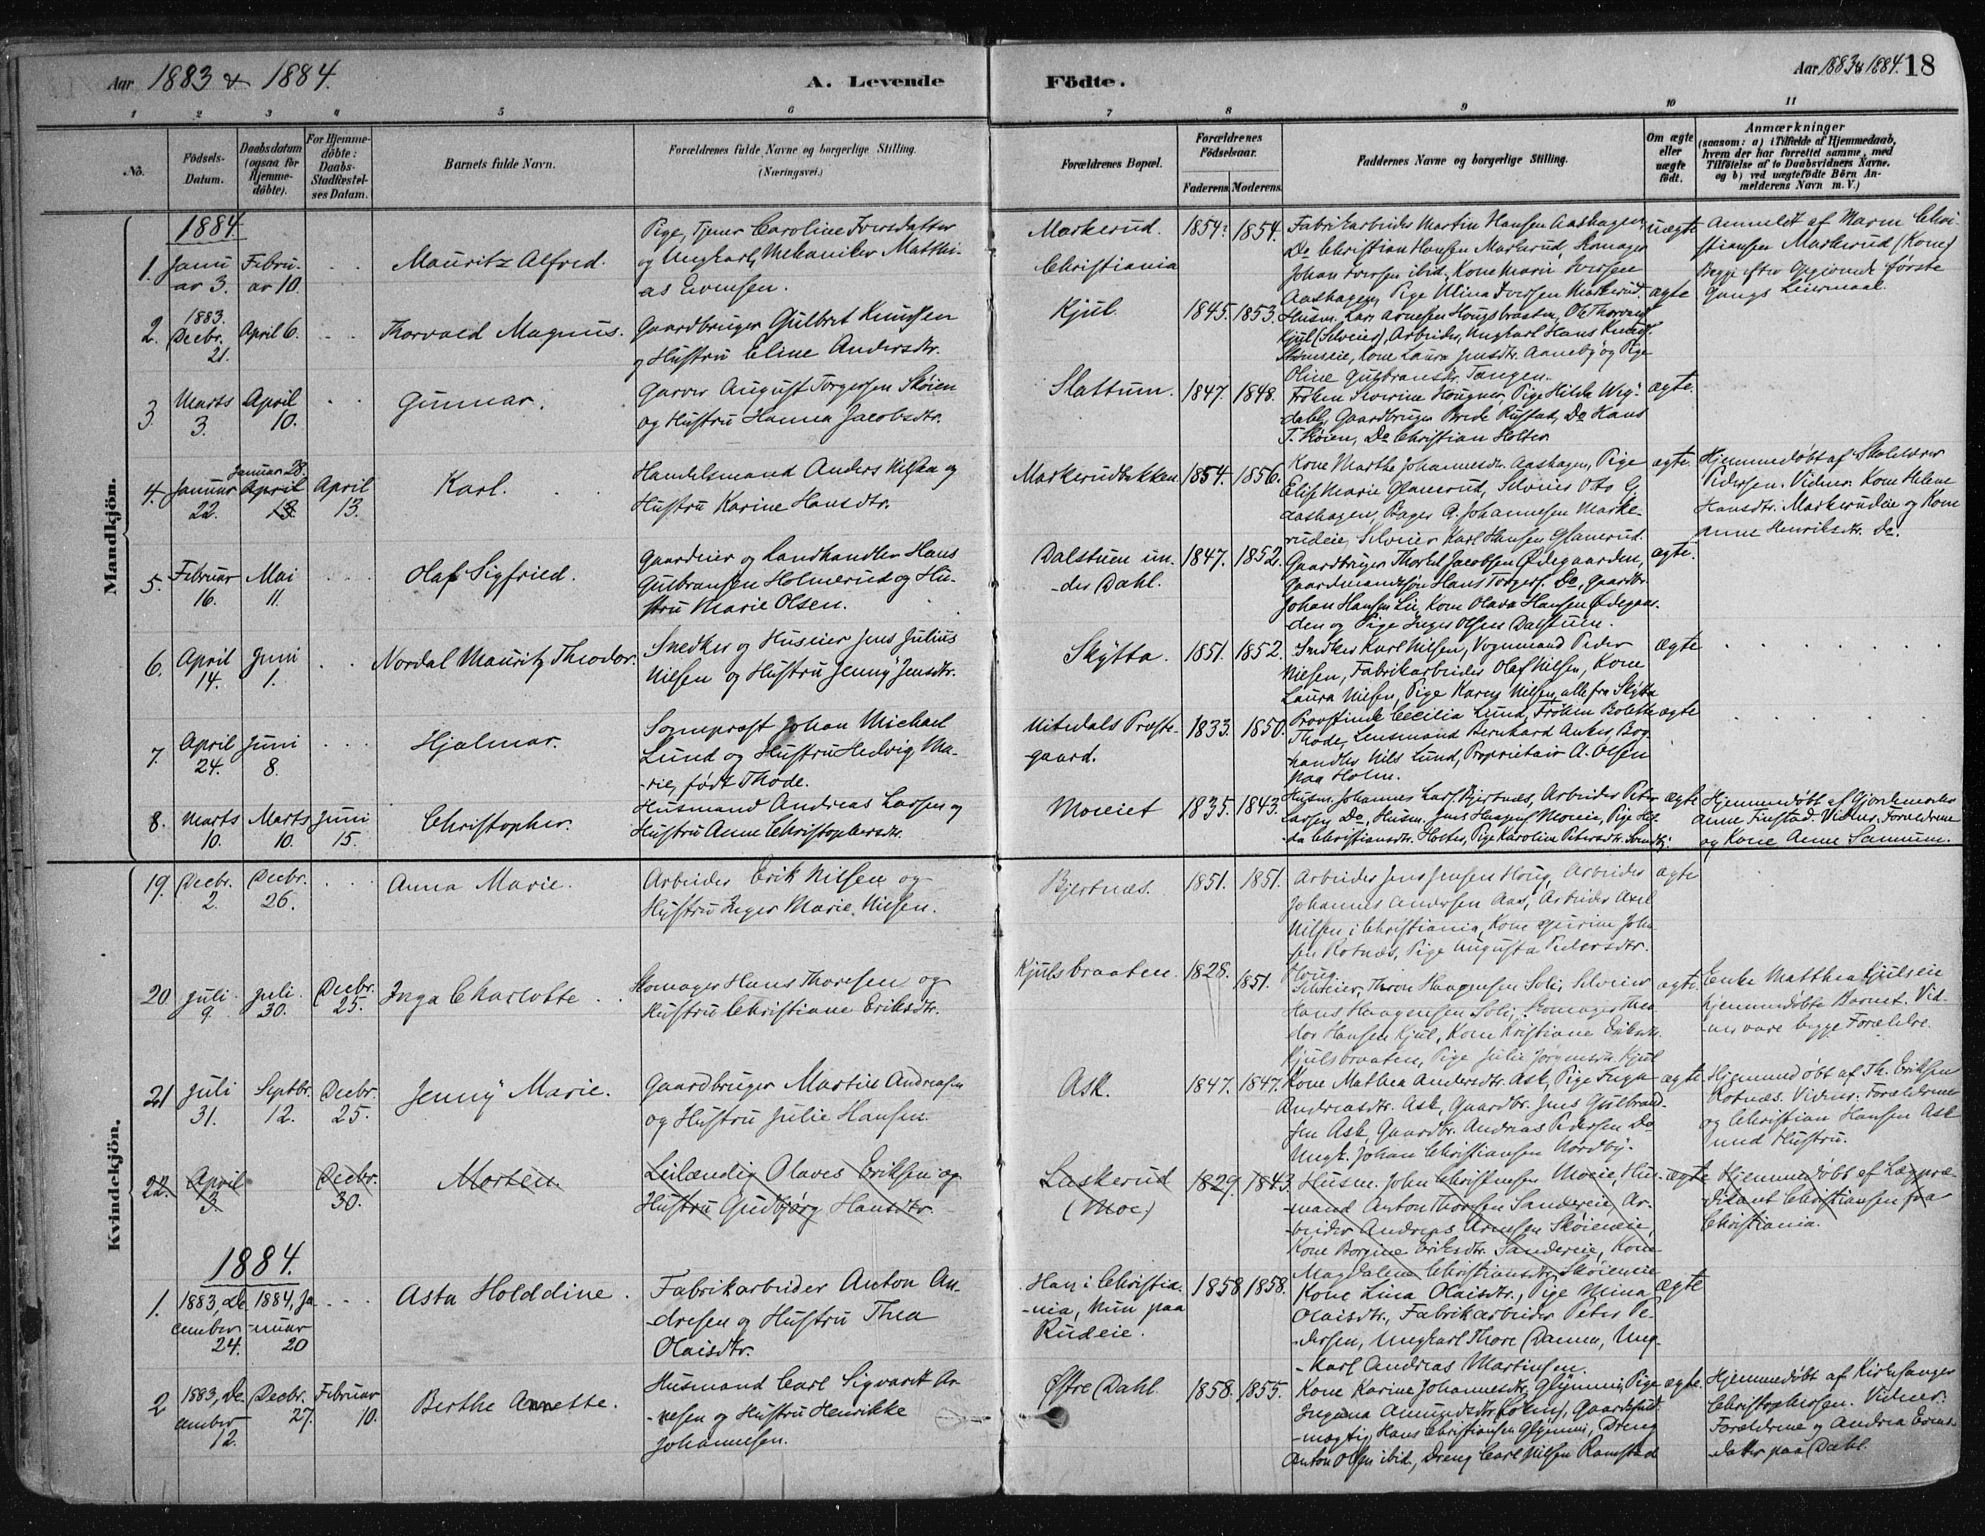 Aar 1883 & 1884.
A. Levende Födte.
Aar 1883 & 1884. 18
1 2 3 4 5 6 7 8 9 10 11
No.
Födsels-
Datum.
Daabsdatum
(ogsaa for
Hjemme-
döbte).
For Hjemme-
döbte:
Daabs-
Stadfæstel-
ses Datum.
Barnets fulde Navn.
Forældrenes fulde Navne og borgerlige Stilling.
(Næringsvei.)
Forældrenes Bopæl.
Forældrenes
Födselsaar.
Faderens. Moderens.
Faddernes Navne og borgerlige Stilling.
Om ægte
eller
uægte
födt.
Anmærkninger
(saasom: a) i Tilfælde af Hjemmedaab,
hvem der har forrettet samme, med
Tilföielse af to Daabsvidners Navne.
og b) ved uægtefödte Börn An-
melderens Navn m. V.)
Mandkjön.
1884.
1. Janu
ar 3.
Febru-
ar 10.
Mauritz Alfred.
Pige, Tjener Caroline Iversdatter
og Ungkarl, Mekaniker Matthi-
as Evensen.
Markerud.
Christiania
1854. 1854.
Fabrikarbeider Martin Hansen Aashagen,
Do Christian Hansen Markerud, Skomager
Johan Iversen ibid, Kone Marie Iversen
Aashagen, Pige Ulina Iversen Markerud.
uægte
Anmeldt af Maren Chri-
stiansen Markerud (Kone)
Begge efter Opgivende første
Gangs Leiermaal.
2. 1883.
Decbr.
21.
April 6.
Thorvald Magnus.
Gaardbruger Gulbret Knudsen
og Hustru Eline Andersdtr.
Kjul.
1845. 1853.
Husm. Lars Arnesen Hougsbraaten, Ole Thorvaldsen
Kjul (Selveier), Arbeider, Ungkarl Hans Knudsen
Skøienseie, Kone Laura Jensdtr. Aaneby og Pige
Oline Gulbransdtr. Tangen.
ægte
3. Marts
3.
April
10.
Gunnar.
Garver August Torgersen Skøien
og Hustru Hanna Jacobsdtr.
Slattum.
1847. 1848.
Frøken Severine Hougner, Pige Hilda Weg-
dahl, Gaardbruger Brede Rustad, Do Hans
T. Skøien, Do Christian Holter.
ægte.
4. Januar
22.
Januar 28.
April
13.
April
13.
Karl.
Handelsmand Anders Nilsen og
Hustru Karine Hansdtr.
Markerudbakken.
1854. 1856.
Kone Marthe Johannesdtr. Aashagen, Pige
Elise Marie Glanerud, Selveier Otto G.
Aashagen, Bager A. Johannesen Marke-
rudeie, Selveier Karl Hansen Glanerud.
ægte.
Hjemmedøbt af Skolelærer
Pedersen. Vidner. Kone Helene
Hansdtr. Markerudeie og Kone
Anne Henriksdtr. Do
5. Februar
16.
Mai
11.
Olaf Sigfried.
Gaardeier og Landhandler Hans
Gulbransen Holmerud og Hu-
stru Marie Olsen.
Dalstuen un-
der Dahl.
1847. 1852.
Gaardbruger Thorkel Jacobsen Ødegaarden,
Gaardmandssøn Hans Torgers. Do, Gaardbr.
Johan Hansen Li, Kone Olava Hansen Ødegaar-
den og Pige Inger Olsen Dalstuen.
ægte.
6. April
14.
Juni
1.
Nordal Mauritz Theodor.
Snedker og Huseier Jens Julius
Nilsen og Hustru Jenny Jensdtr.
Skÿtta.
1851. 1852.
Snedker Karl Nilsen, Vognmand Peder
Nilsen, Fabrikarbeider Olaf Nilsen, Kone
Laura Nilsen, Pige Karen Nilsen, alle fra Skÿtta
ægte
7. April
24.
Juni
8.
Hjalmar.
Sognepræst Johan Michael
Lund og Hustru Hedvig Ma-
rie, født Thode.
Nitedals Præste-
gaard.
1833. 1850.
Provstinde Cecilia Lund, Frøken Bolette
Thode, Lensmand Bernhard Anker, Bog-
handler Nils Lund, Proprietair A. Olsen
paa Holm.
ægte
8. Marts
10.
Marts
10.
Juni
15.
Christopher.
Husmand Andreas Larsen og
Hustru Anne Christophersdtr.
Moeiet
1835. 1843.
Husm. Johannes Lars. Bjertnæs, Arbeider Peter
Larsen Do, Husm. Jens Hansen Moeie, Pige Hel-
da Christiansdtr. Holter, Pige Karoline Petersdtr.
ægte
Hjemmedøbt af Gjordemoder
Anne Finstad. Vidner. Forældrene
og Kone Anne Samuem.
Kvindekjön.
19. Decbr.
2.
Decbr.
26.
Anna Marie.
Arbeider Erik Nilsen og
Hustru Inger Marie Nilsen.
Bjertnæs.
1851. 1851.
Arbeider Jens Jensen Houg, Arbeider
Johannes Andersen Aas, Arbeider Axel
Nilsen i Christiania, Kone Gurine Joh-
sen Rotnæs, Pige Augusta Pedersdtr.
Houg.
ægte
20 Juli
9
Juli
30.
Decbr.
25.
Inga Charlotte
Skomager Hans Thoresen og
Hustru Christiane Eriksdtr.
Kjulsbraaten.
1828. 1851.
Selveier Thron Haagensen Soli, Selveier
Hans Haagensen Soli, Skomager Theo-
dor Hansen Kjul, Kone Kristiane Eriksdtr.
Kjulsbraaten, Pige Julie Jørgensdtr. Kjul
ægte.
Enke Matthea Kjulseie
hjemmedøbte Barnet. Vid-
ner vare begge Forældre.
21 Juli
31.
Septbr.
12.
Decbr.
25.
Jenny Marie.
Gaardbruger Martin Andreasen
og Hustru Julie Hansen
Ask.
1847. 1847.
Kone Mathea Andersdtr. Ask, Pige Inga
Andreasdtr. Ask, Gaardbr. Jens Gulbrand-
sen Ask, Gaardbr. Andreas Pedersen Do
Ungk. Johan Christiansen Nordby.
ægte.
Hjemmedøbt af Th. Eriksen
Rotnæs. Vidner. Forældrene
og Christian Hansen Ask
med Hustru.
22. April
13
Decbr.
30.
Morten
Leilænding Olaves Eriksen og
Hustru Gudbjørg Hansdtr.
Laskerud
(Moe)
1829. 1843.
Husm. John Christensen Moeie, Hus-
mand Anton Thorsen Sandereie, Ar-
beider Andreas Arnesen Skøieneie,
Kone Borgine Eriksdtr. Sandereie, Kone
Magdalene Christiansdtr. Skøieneie
ægte
Hjemmedøbt af Lægpræ-
dikant Christiansen fra
Christiania.
1884.
1. 1883, De
cember
24.
1884, Ja
nuar
20
Asta Holddine.
Fabrikarbeider Anton An-
dresen og Hustru Thea
Olaisdtr.
Han i Christia-
nia, hun paa
Rudeie.
1858 1858.
Kone Lina Olaisdtr., Pige Mina
Olaisdtr., Fabrikarbeider Peter Pe-
dersen, Ungkarl Thore Danner, Ung-
karl Andreas Martinsen.
ægte
2 1883, De
cember
12.
Decbr.
27.
Februar
10.
Berthe Annette.
Husmand Carl Sigvart Ar-
nesen og Hustru Henrikke
Johannesen.
Øfre Dahl.
1858. 1855.
Kone Karine Johannesdtr. Glÿmmi, Pige
Ingeana Amundsdtr. Løken, Gaardsfuld-
mægtig Hans Christiansen Glÿmmi, Dreng
Anton Olsen ibid., Dreng Carl Nilsen Ramstad
ægte.
Hjemmedøbt af Kirkesanger
Christophersen. Vidner:
Forældrene og Andrea Evens-
datter paa Dahl.